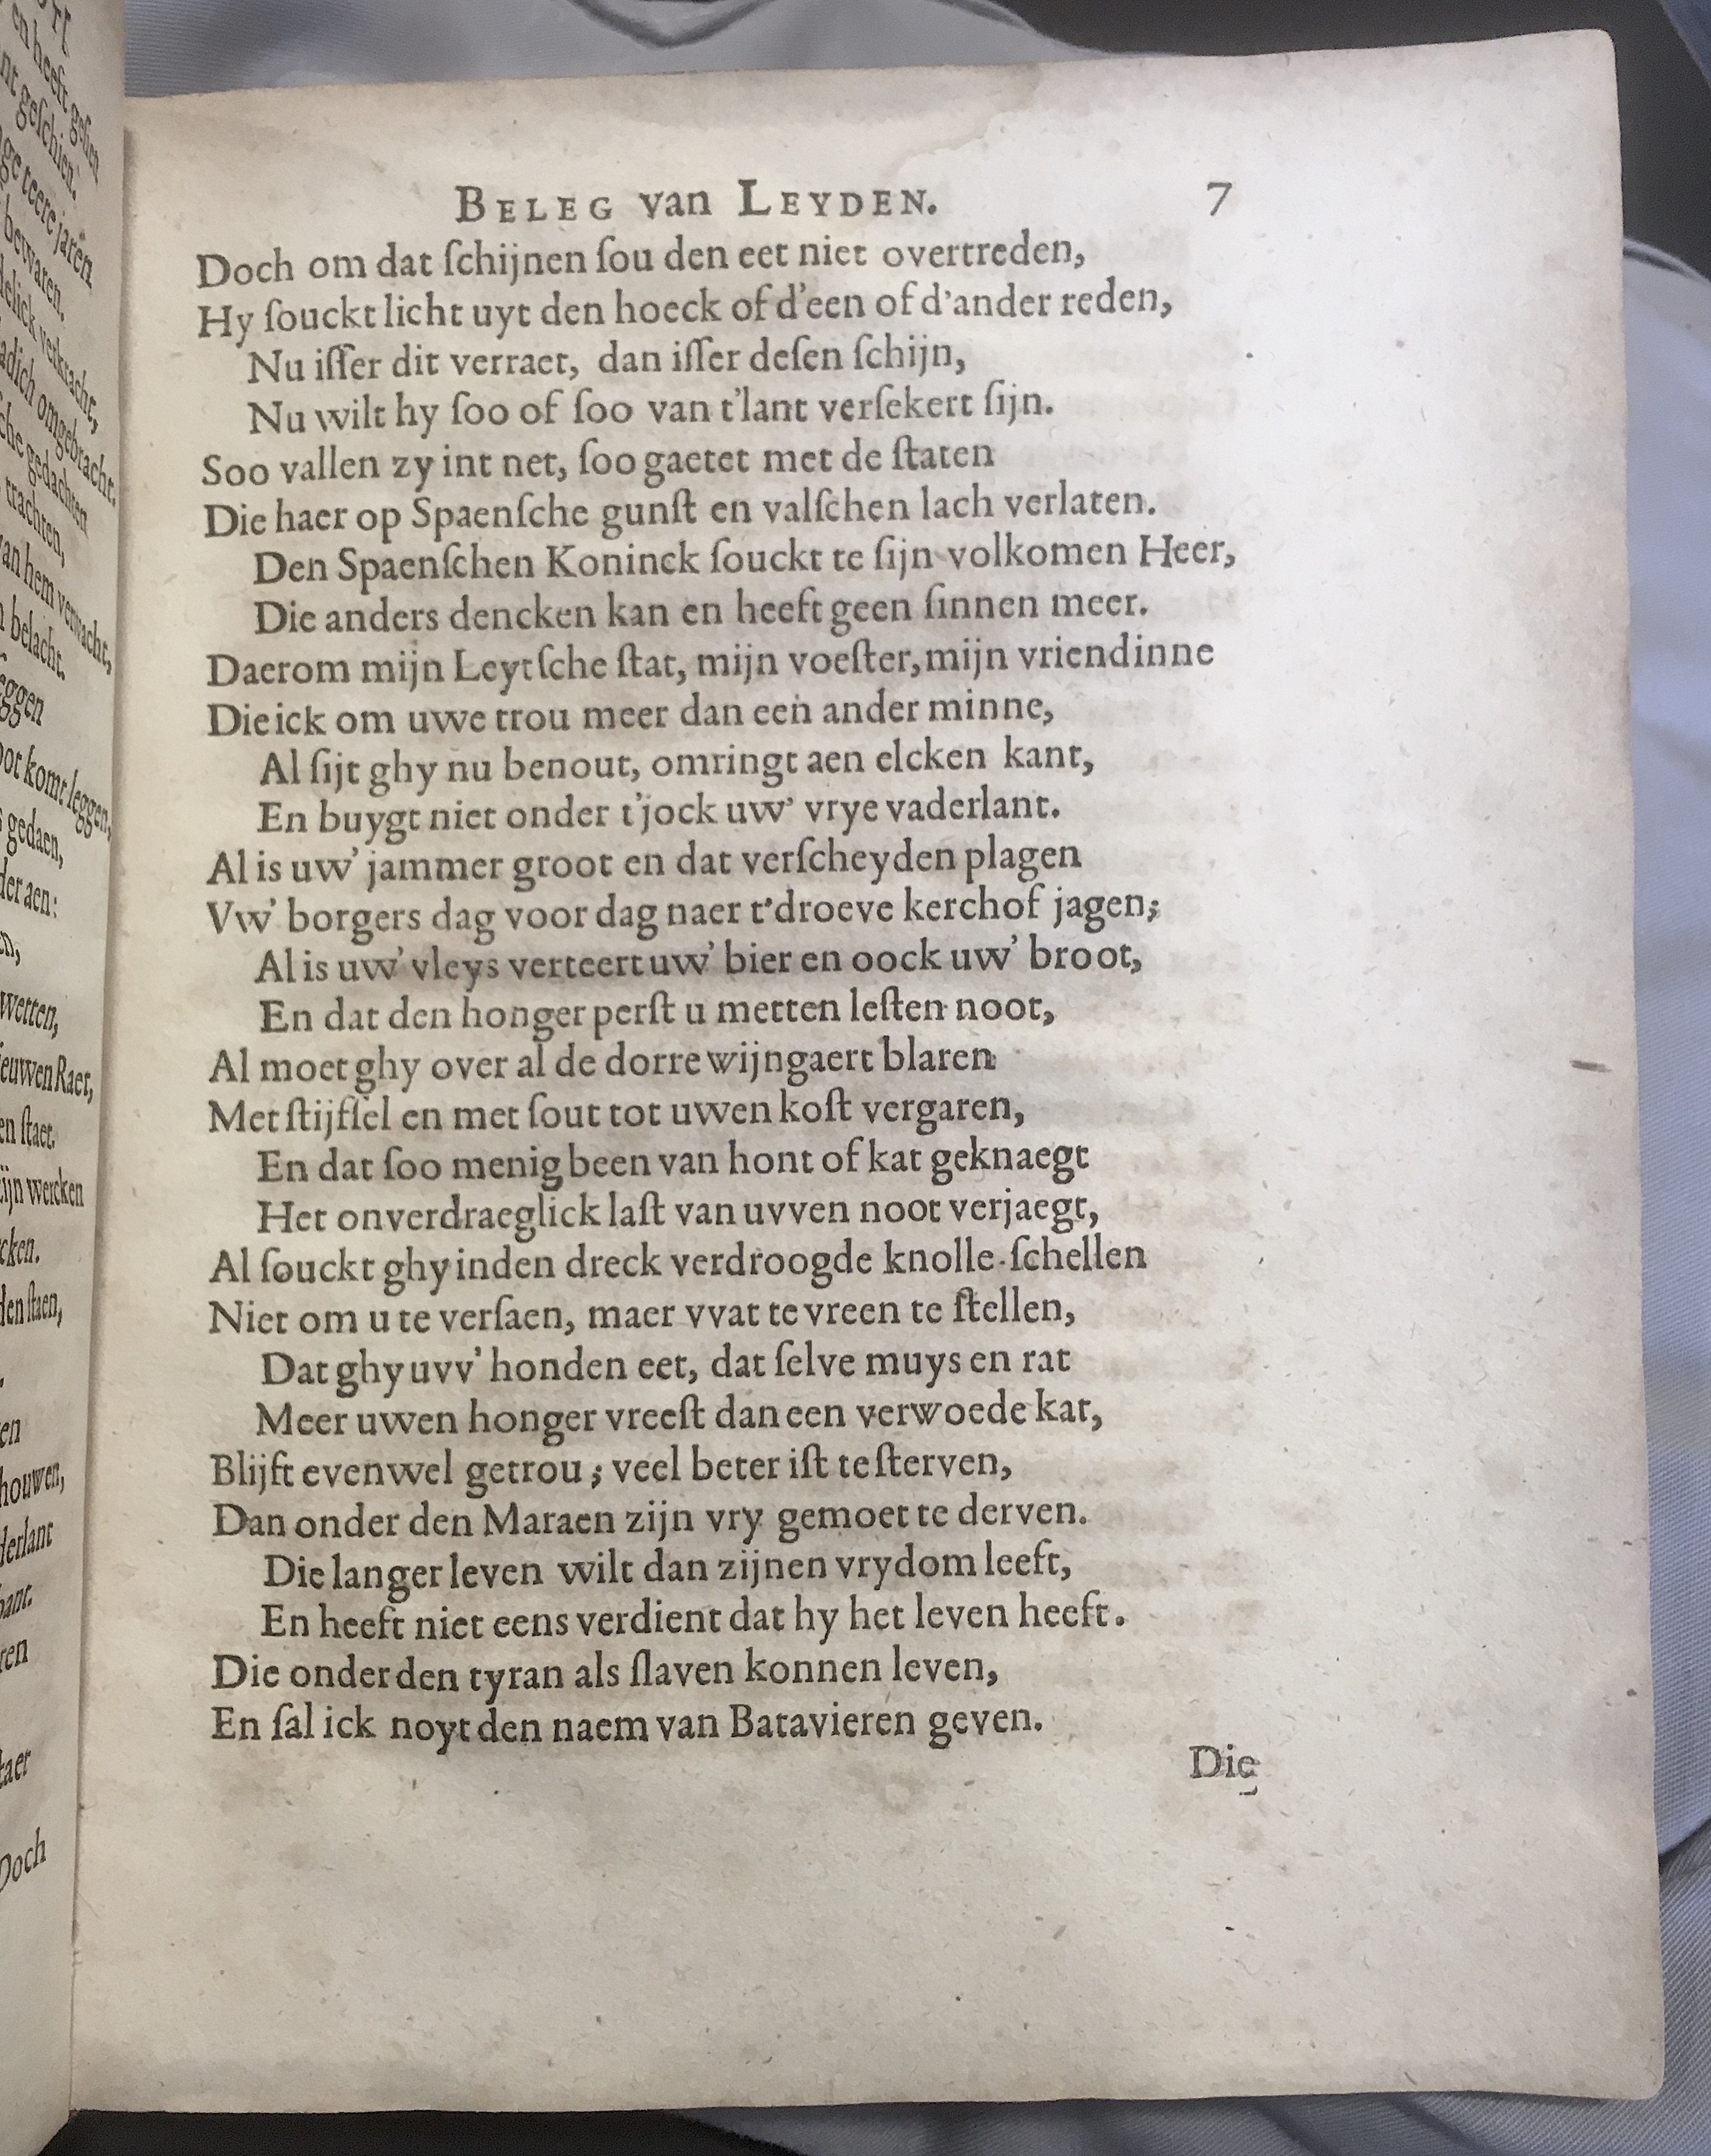 BELEG van LEYDEN. 7
Doch om dat ſchijnen ſou den eet niet overtreden,
Hy ſouckt licht uyt den hoeck of d'een of d'ander reden,
Nu iſſer dit verraet, dan iſſer deſen ſchijn,
Nu wilt hy ſoo of ſoo van t'lant verſekert ſijn.
Soo vallen zy int net, ſoo gaetet met de ſtaten
Die haer op Spaenſche gunſt en valſchen lach verlaten.
Den Spaenſchen Koninck ſouckt te ſijn volkomen Heer,
Die anders dencken kan en heeft geen ſinnen meer.
Daerom mijn Leytſche ſtat, mijn voeſter, mijn vriendinne
Die ick om uwe trou meer dan een ander minne,
Al ſijt ghy nu benout, omringt aen elcken kant,
En buygt niet onder t'jock uw' vrye vaderlant.
Al is uw' jammer groot en dat verſcheyden plagen
Vw' borgers dag voor dag naer t'droeve kerchof jagen;
Al is uw' vleys verteert uw' bier en oock uw' broot,
En dat den honger perſt u metten leſten noot,
Al moet ghy over al de dorre wijngaert blaren
Met ſtijfſel en met ſout tot uwen koſt vergaren,
En dat ſoo menig been van hont of kat geknaegt
Het onverdraeglick laſt van uvven noot verjaegt,
Al ſouckt ghy inden dreck verdroogde knolle-ſchellen
Niet om u te verſaen, maer vvat te vreen te ſtellen,
Dat ghy uvv' honden eet, dat ſelve muys en rat
Meer uwen honger vreeſt dan een verwoede kat,
Blijft evenwel getrou; veel beter iſt te ſterven,
Dan onder den Maraen zijn vry gemoet te derven.
Die langer leven wilt dan zijnen vrydom leeft,
En heeft niet eens verdient dat hy het leven heeft.
Die onder den tyran als ſlaven konnen leven,
En ſal ick noyt den naem van Batavieren geven.
Die